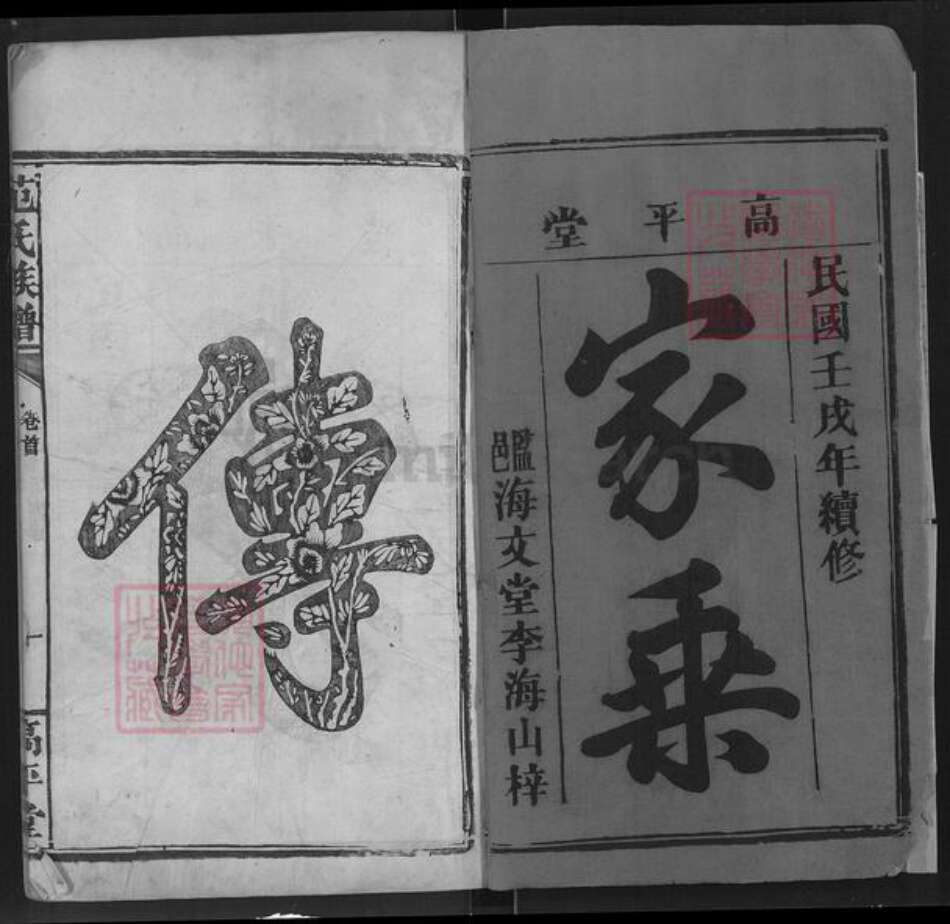 高平堂
民國壬戌年續修
家乘
邑海文堂李海山梓
傳
范氏族譜
卷首
一
高平堂